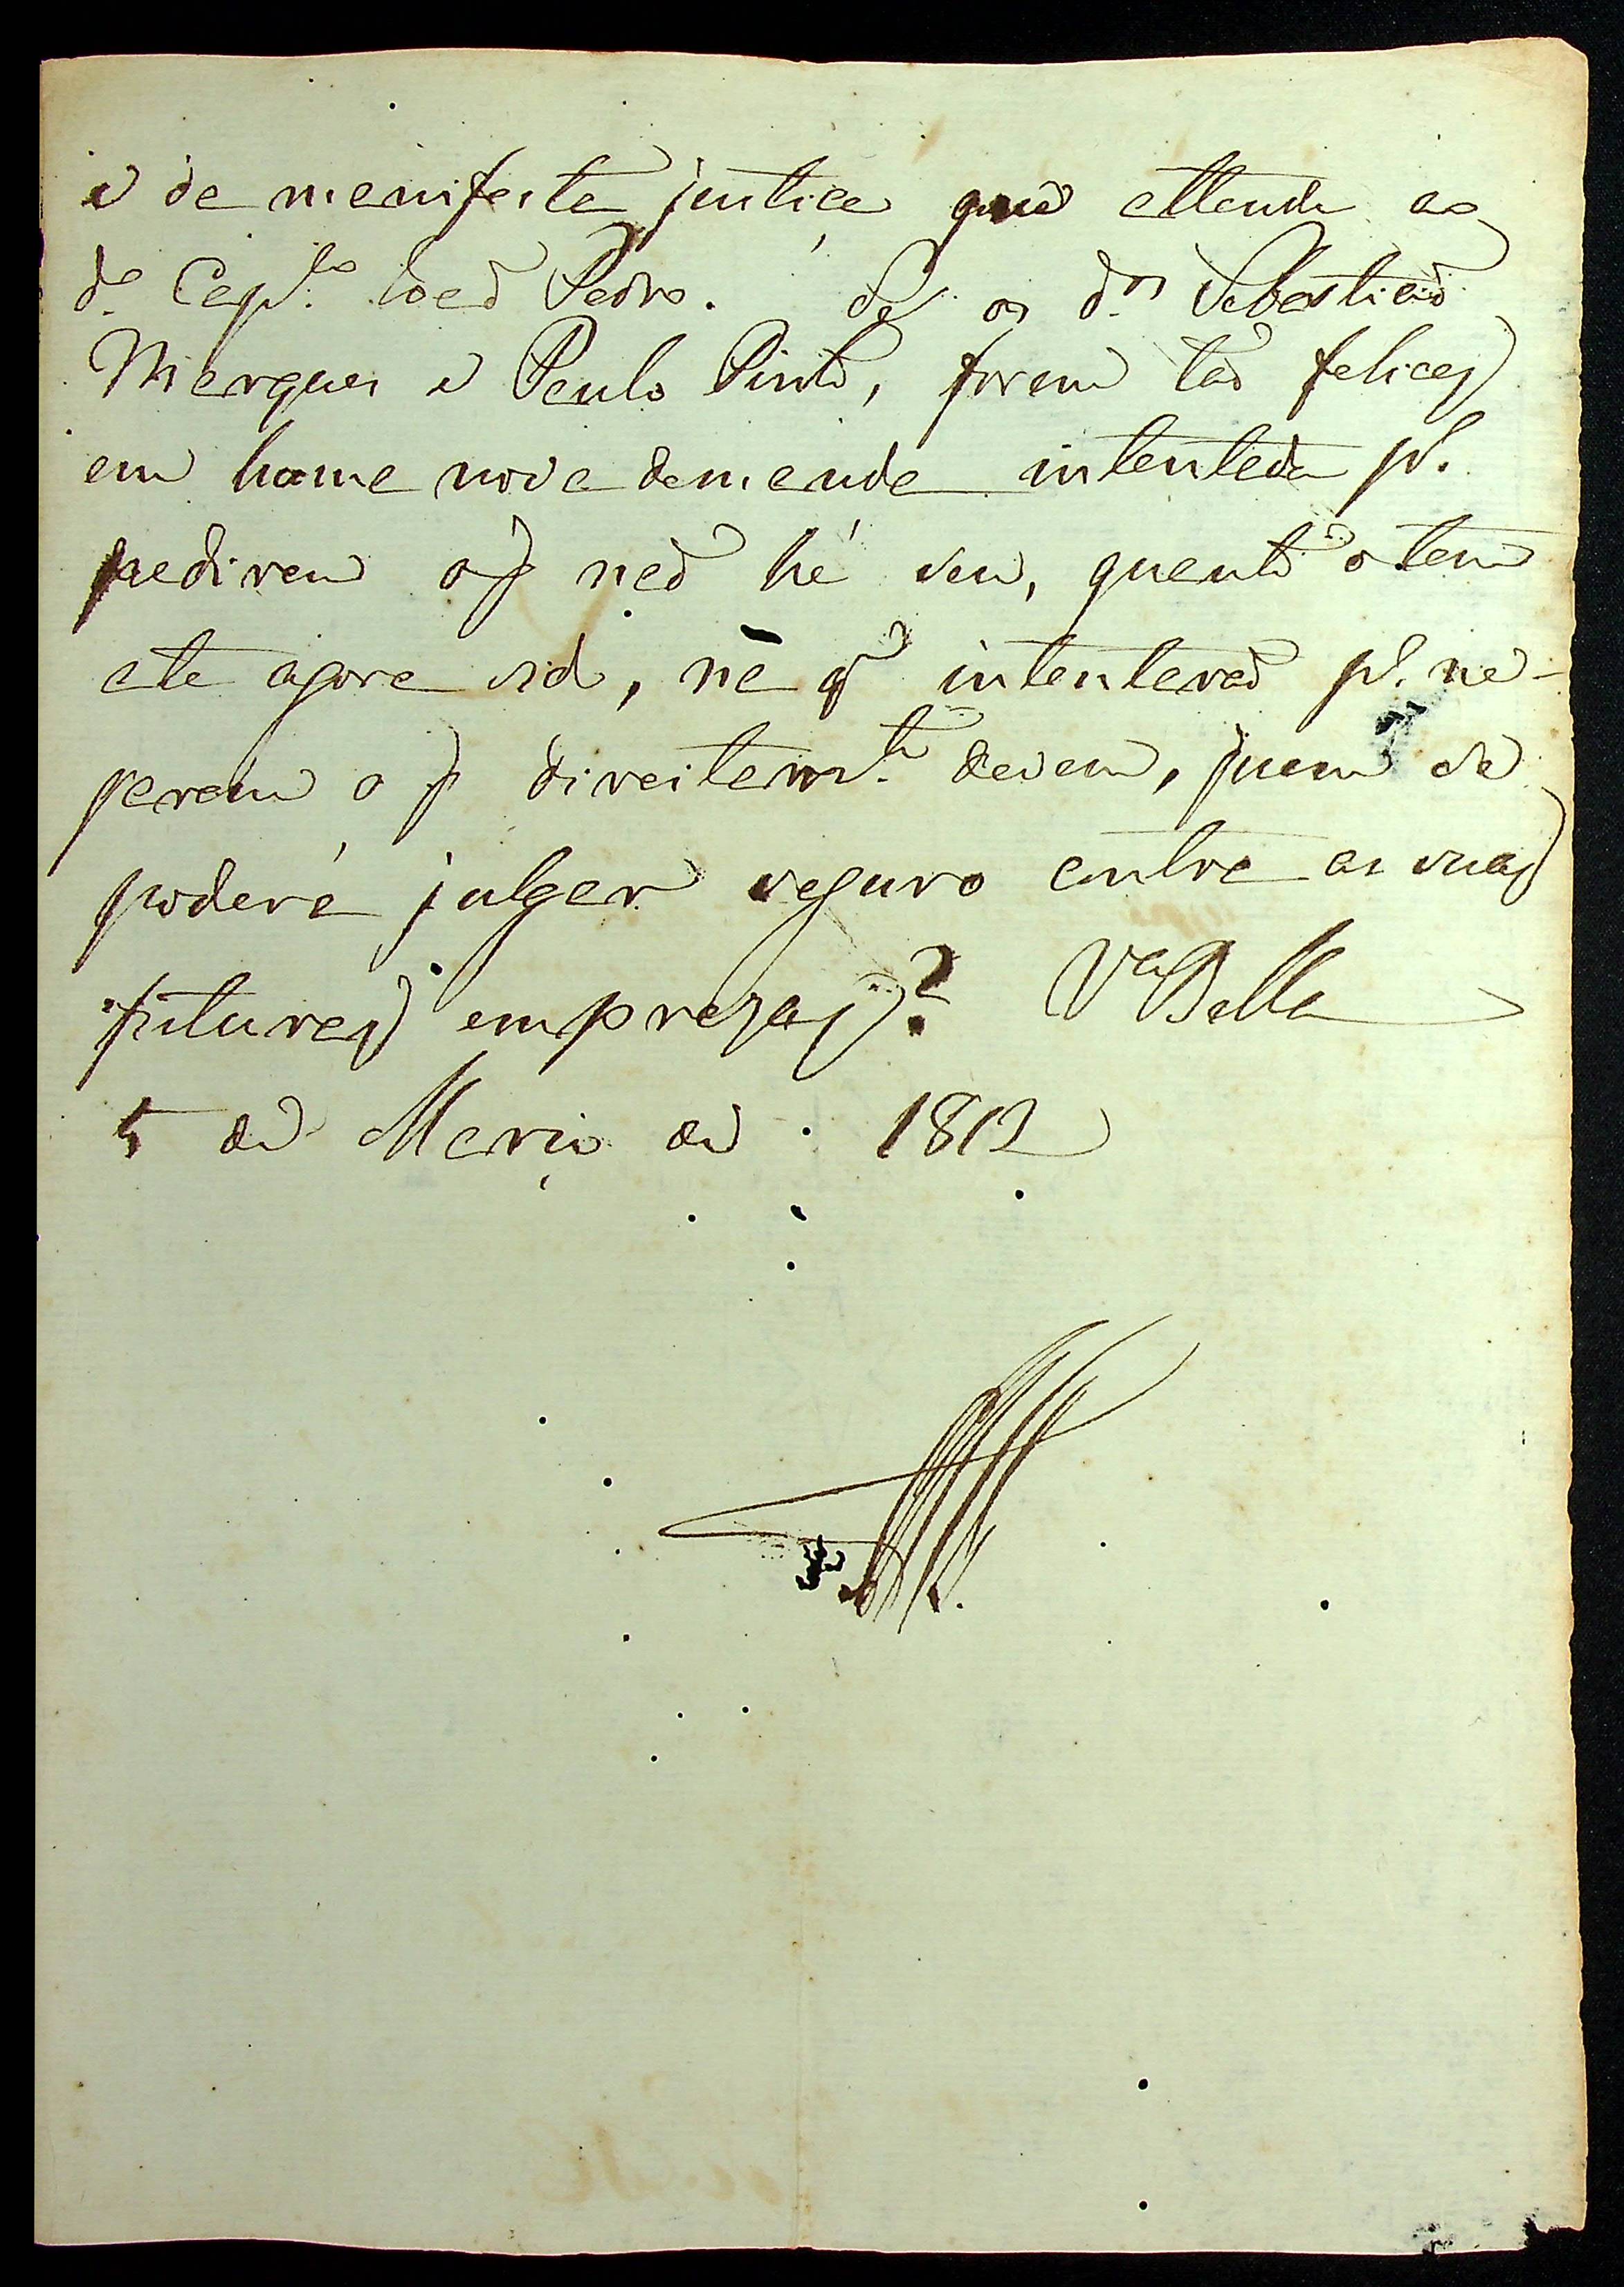 e de manifesta justiça que attenda ao
d.º Cap.ᵗᵃᵐ Joaõ Pedro. Se os d.ᵒˢ Sebastiaõ
Marques e Paulo Pinto, forem taõ felices
em huma nova demanda intentada p.ª
pedirem o q naõ hé seu, quanto o tem
ate agora sido, nè q intenteraõ p.ª ne-
garem o q direitam.ᵗᵉ devem, quem se
poderá julgar seguro contra as suas
futuras emprezas? Vᵃ Bella
5 de Março de 1812